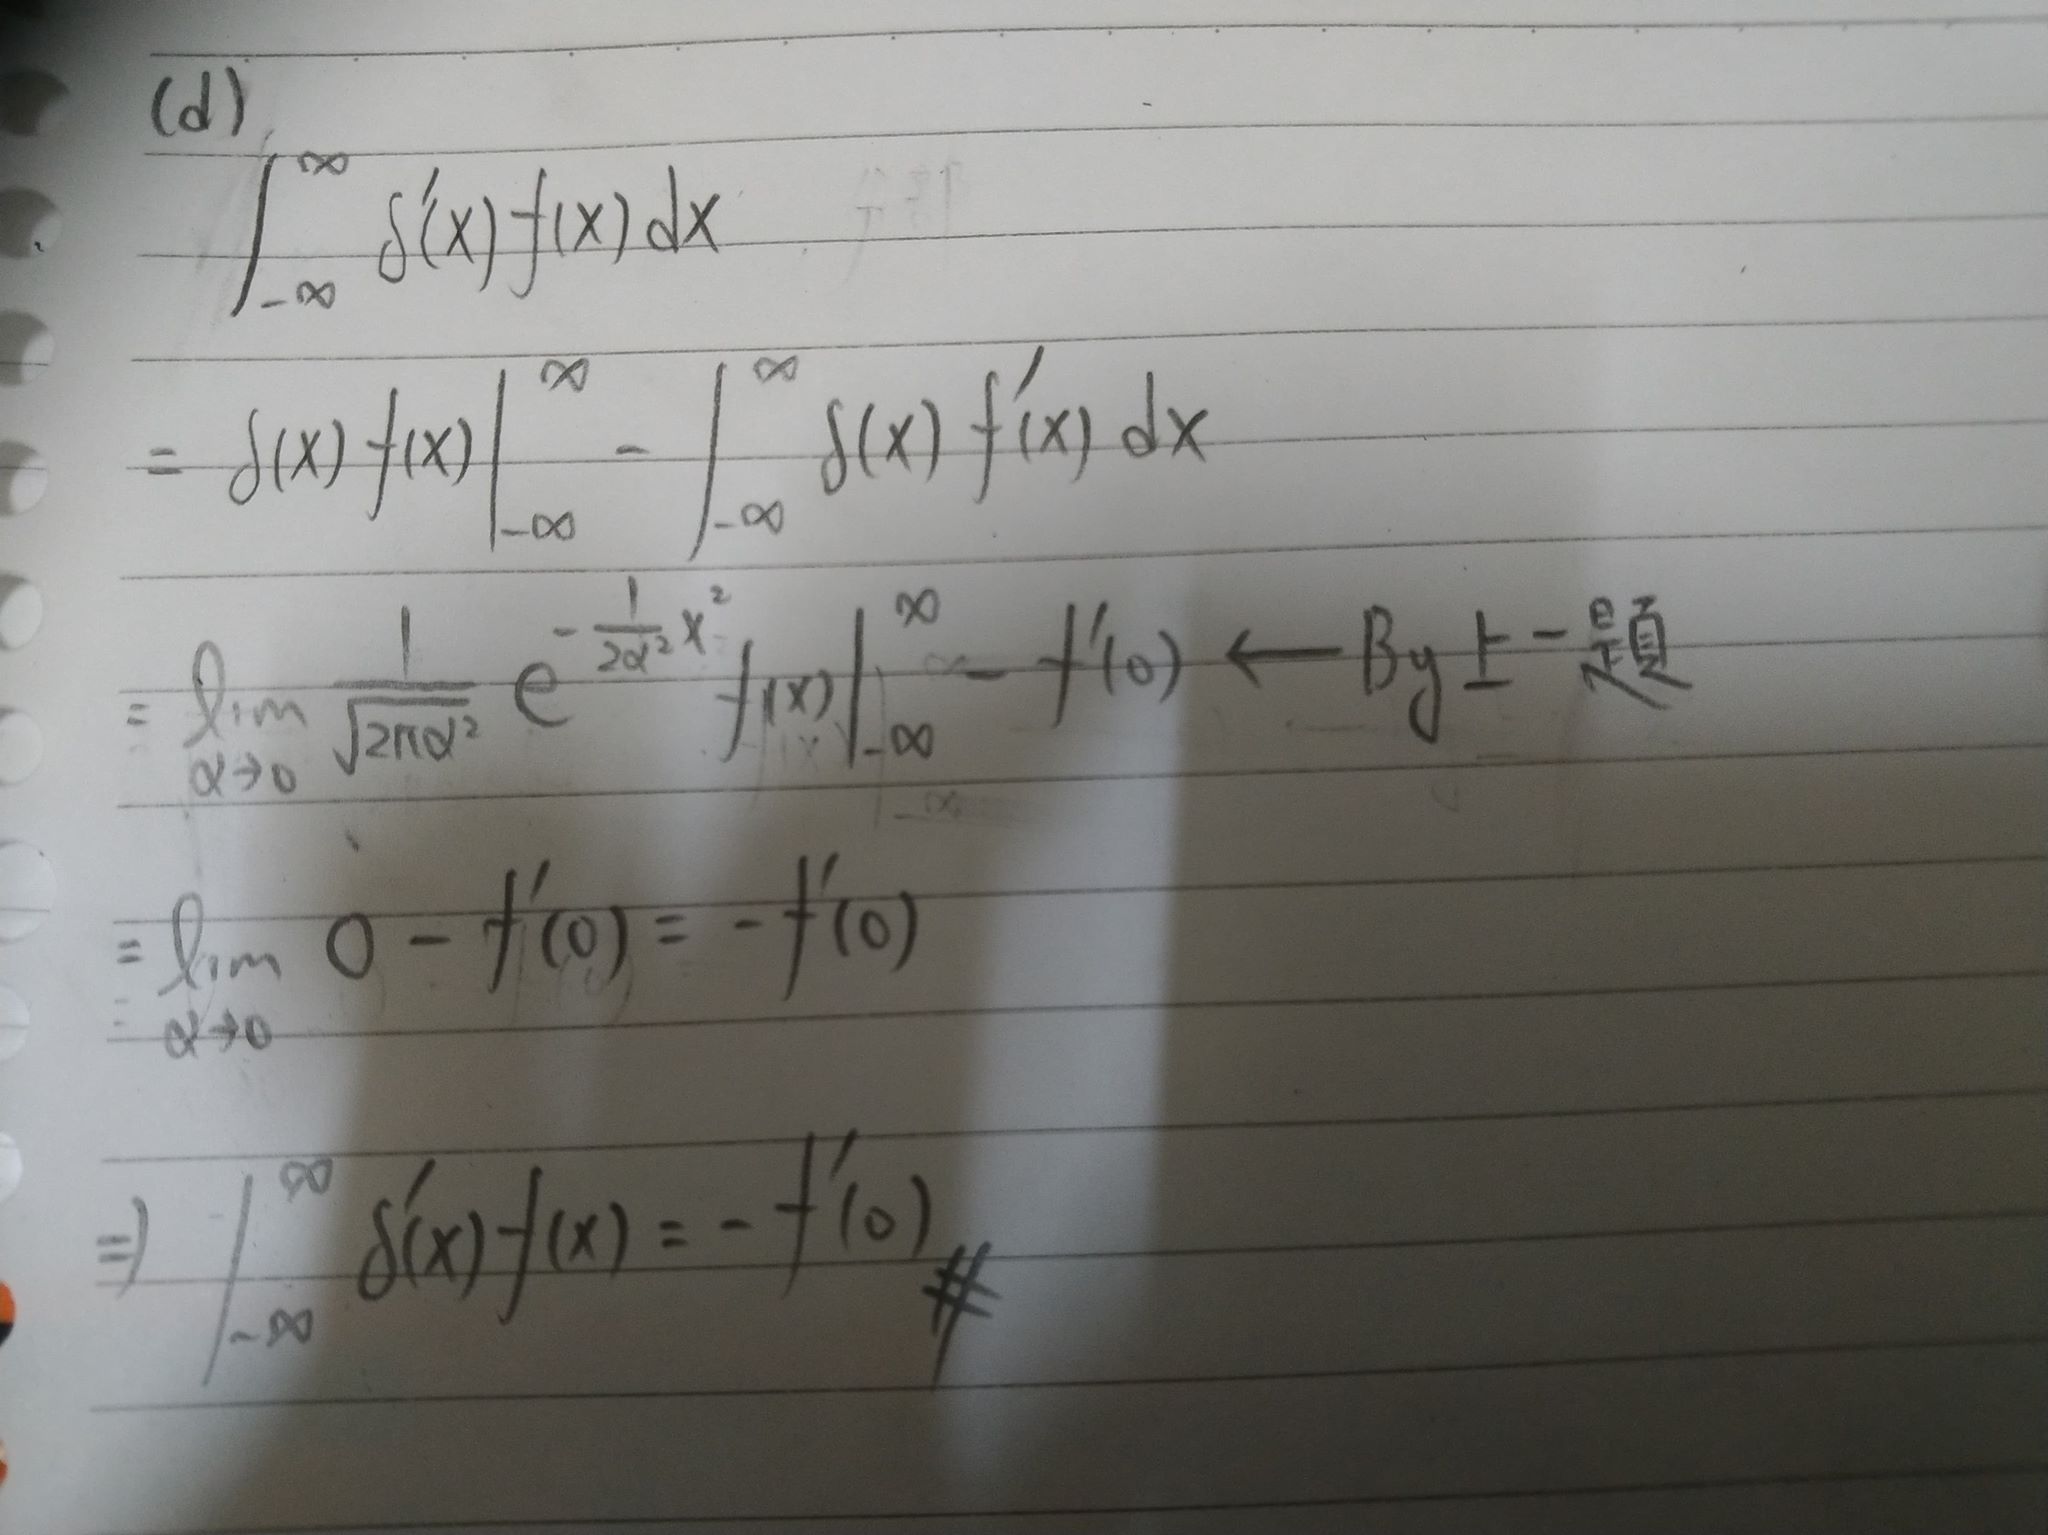 (d)
∫_{-∞}^{∞} δ'(x) f(x) dx
= δ(x) f(x) |_{-∞}^{∞} - ∫_{-∞}^{∞} δ(x) f'(x) dx
= lim_{α→0} 1/√(2πα²) e^{-1/(2α²) x²} f(x) |_{-∞}^{∞} - f'(0) ← By 上一題
= lim_{α→0} 0 - f'(0) = - f'(0)
⇒ ∫_{-∞}^{∞} δ'(x) f(x) = - f'(0) #